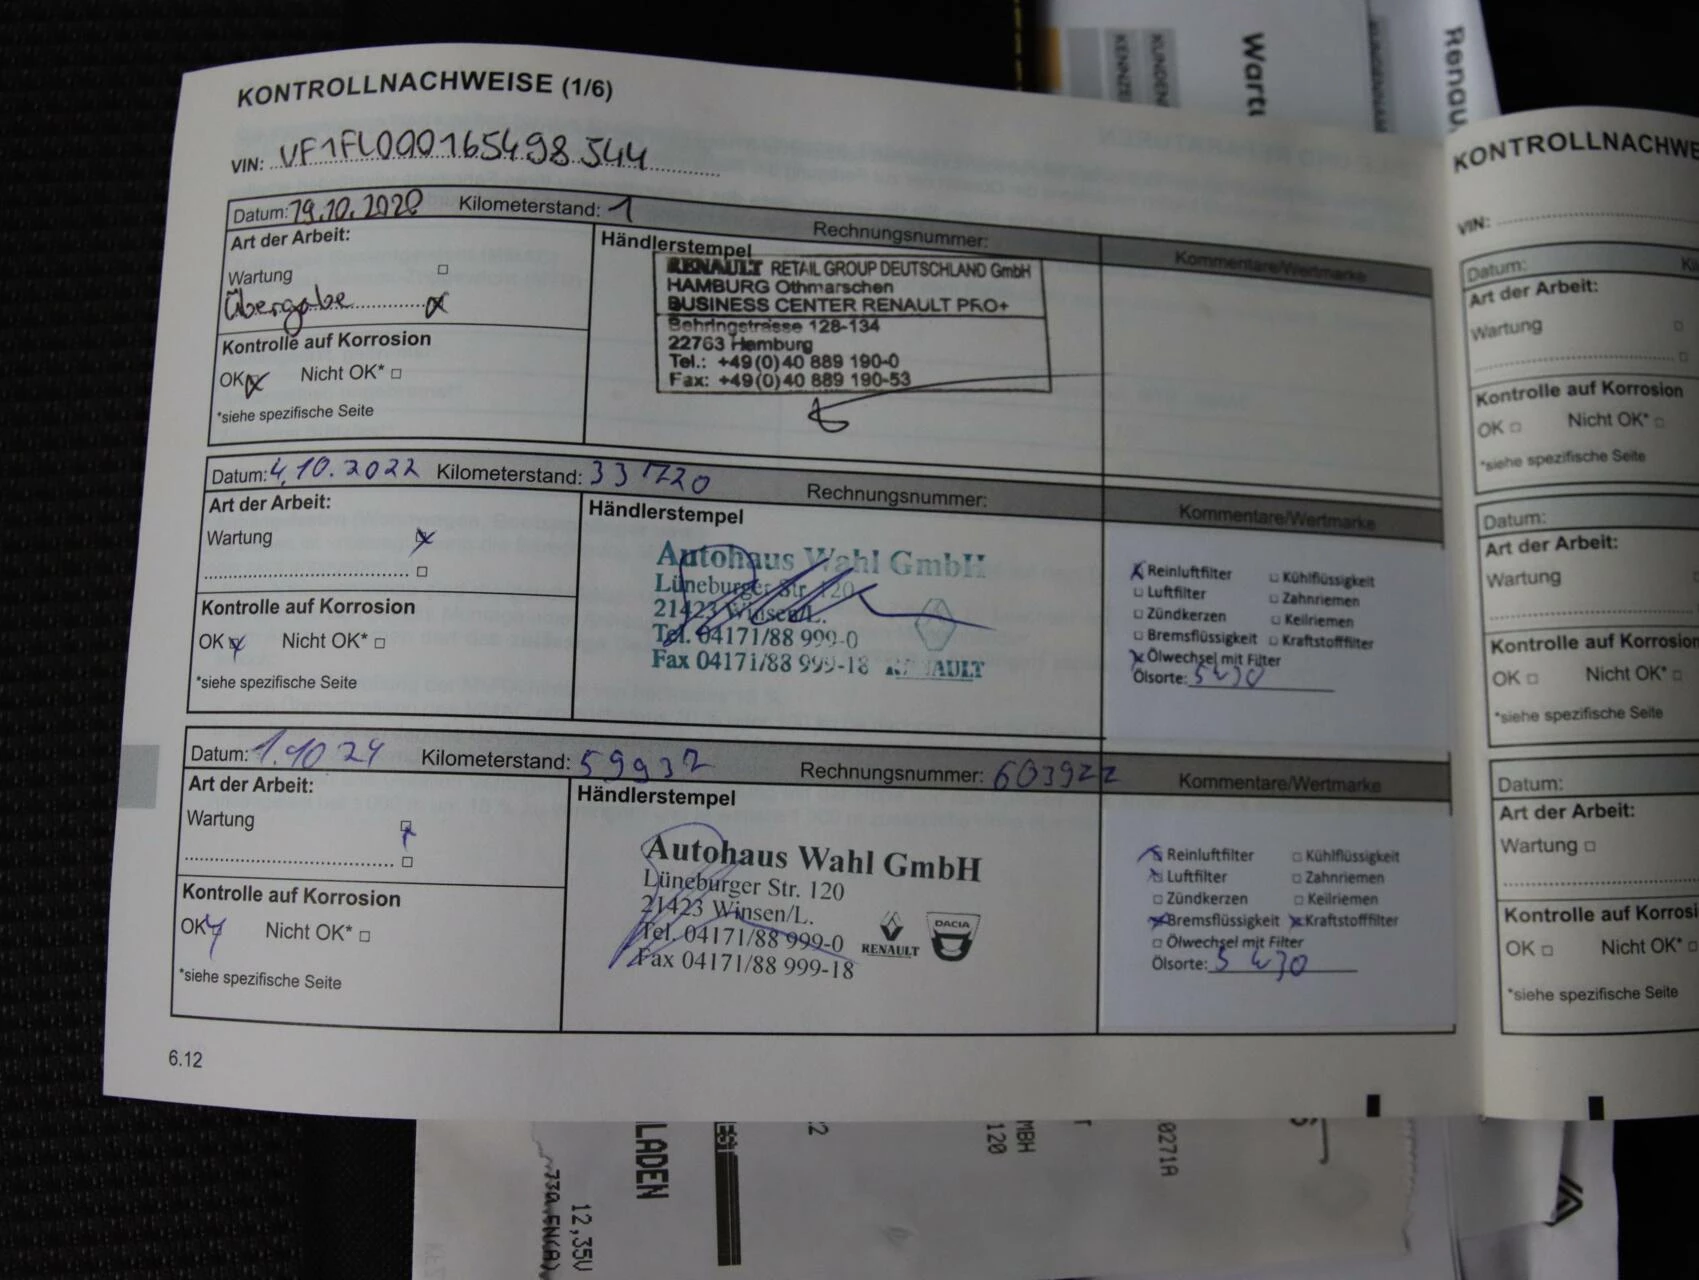 KONTROLLNACHWEISE (1/6)
VIN: VF1FL000165498544
Datum: 19.10.2020 Kilometerstand: 1 Rechnungsnummer:
Art der Arbeit:
Wartung
Übergabe
Kontrolle auf Korrosion
OK Nicht OK*
*siehe spezifische Seite
Händlerstempel
RENAULT RETAIL GROUP DEUTSCHLAND GmbH
HAMBURG Othmarschen
BUSINESS CENTER RENAULT PRO+
Behringstrasse 128-134
22763 Hamburg
Tel.: +49(0)40 889 190-0
Fax: +49(0)40 889 190-53
Kommentare/Wertmarke
Datum: 4.10.2022 Kilometerstand: Rechnungsnummer:
Art der Arbeit:
Wartung
Kontrolle auf Korrosion
OK Nicht OK*
*siehe spezifische Seite
Händlerstempel
Autohaus Wahl GmbH
Lüneburger Str. 120
21423 Winsen/L.
Tel. 04171/88 999-0
Fax 04171/88 999-18 RENAULT
Kommentare/Wertmarke
Reinluftfilter Kühlflüssigkeit
Luftfilter Zahnriemen
Zündkerzen Keilriemen
Bremsflüssigkeit Kraftstofffilter
Ölwechsel mit Filter
Ölsorte: 5W30
Datum: 1.10 24 Kilometerstand: 59932 Rechnungsnummer: 603922
Art der Arbeit:
Wartung
Kontrolle auf Korrosion
OK Nicht OK*
*siehe spezifische Seite
Händlerstempel
Autohaus Wahl GmbH
Lüneburger Str. 120
21423 Winsen/L.
Tel. 04171/88 999-0
Fax 04171/88 999-18
RENAULT
DACIA
Kommentare/Wertmarke
Reinluftfilter Kühlflüssigkeit
Luftfilter Zahnriemen
Zündkerzen Keilriemen
Bremsflüssigkeit Kraftstofffilter
Ölwechsel mit Filter
Ölsorte: 5W30
6.12
KONTROLLNACHWE
VIN:
Datum:
Art der Arbeit:
Wartung
Kontrolle auf Korrosion
OK Nicht OK*
*siehe spezifische Seite
Datum:
Art der Arbeit:
Wartung
Kontrolle auf Korrosion
OK Nicht OK*
*siehe spezifische Seite
Datum:
Art der Arbeit:
Wartung
Kontrolle auf Korrosi
OK Nicht OK*
*siehe spezifische Seite
KENNZEI
KUNDEN
Wart
KUNDENNAM
Renau
LADEN
12,35V
MBH
120
0271A